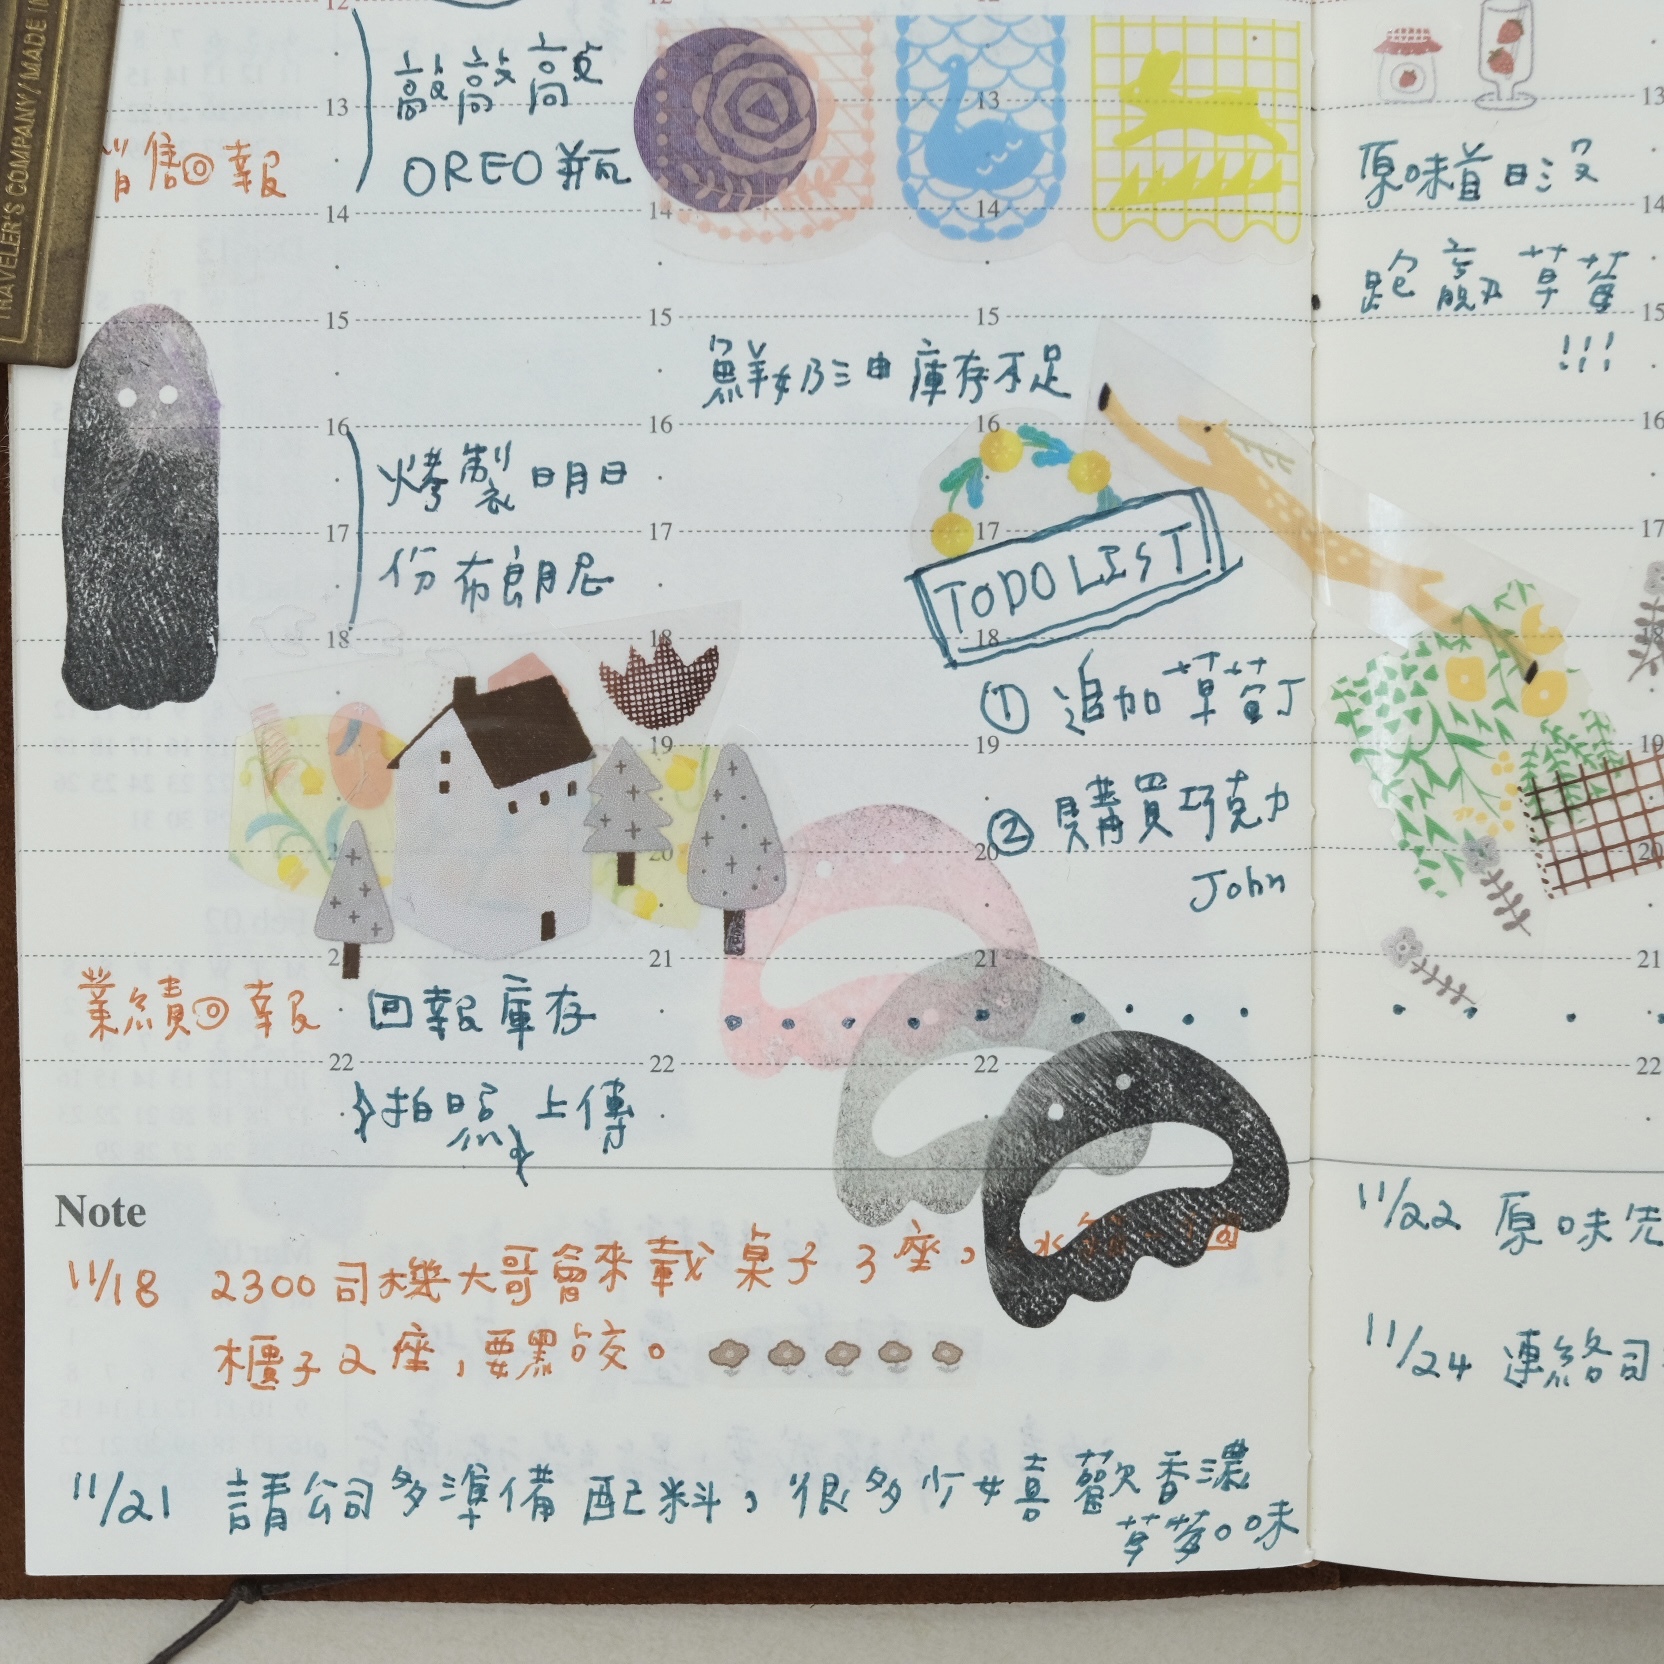 TRAVELER'S COMPANY/MADE IN
12
13
14
15
16
17
18
19
20
21
22
銷售回報
敲敲高
OREO 瓶
鮮奶油庫存不足
烤製明日
份布朗尼
TODO LIST!
① 追加草莓丁
② 購買巧克力
John
業績回報
回報庫存
拍照上傳
原味首日沒
跑贏草莓
!!!
Note
11/18 2300 司機大哥會來載桌子3座,
櫃子2座,要點交。
11/21 請公司多準備配料,很多少女喜歡香濃
草莓口味
11/22 原味先
11/24 連絡司